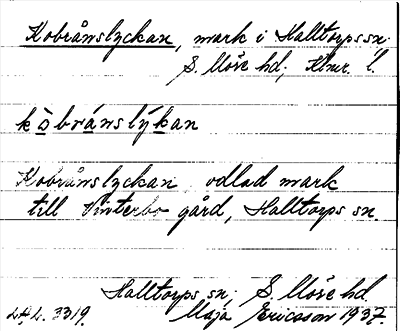 Kobrånslyckan, mark i Halltorps sn.
S. Möre hd; Klmr. l.
kòbránslýkan
Kobrånslyckan odlad mark
till Vinterbo gård, Halltorps sn.
Halltorps sn; S. Möre hd.
3319. Maja Ericsson 1937.